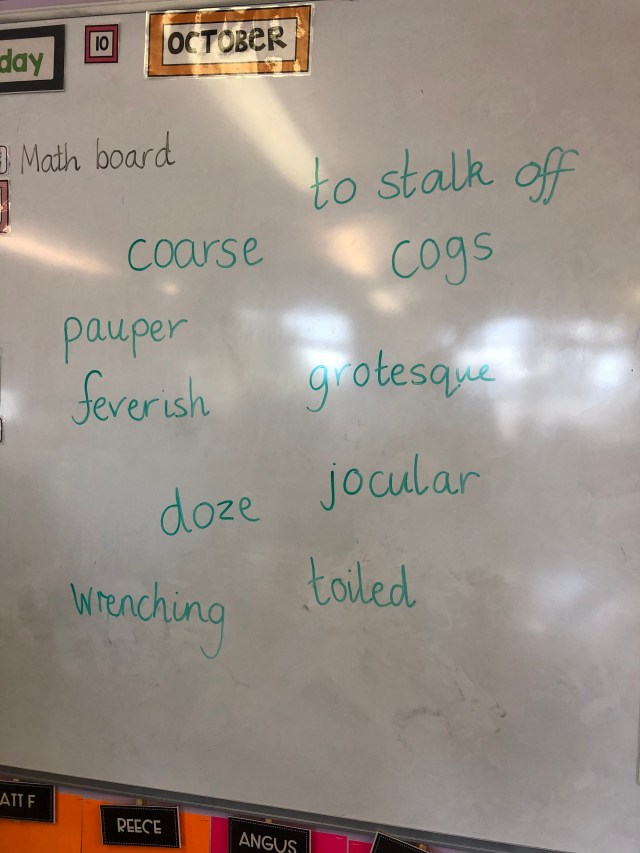 day
10
OCTOBER
Math board
to stalk off
coarse
cogs
pauper
grotesque
feverish
jocular
doze
wrenching
toiled
ATT F
REECE
ANGUS